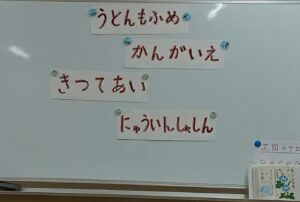 うどんもふめ
かんがいえ
きつてあい
にゅういんしゃしん
次回の